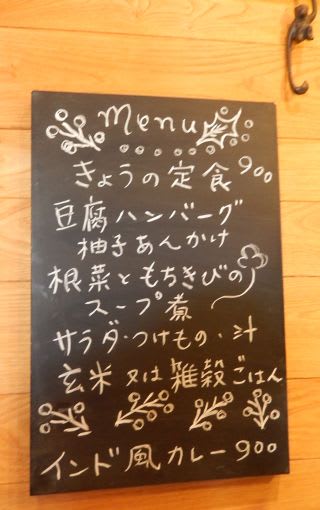 menu
きょうの定食 900
豆腐ハンバーグ
柚子あんかけ
根菜ともちきびの
スープ煮
サラダ・つけもの・汁
玄米又は雑穀ごはん
インド風カレー900